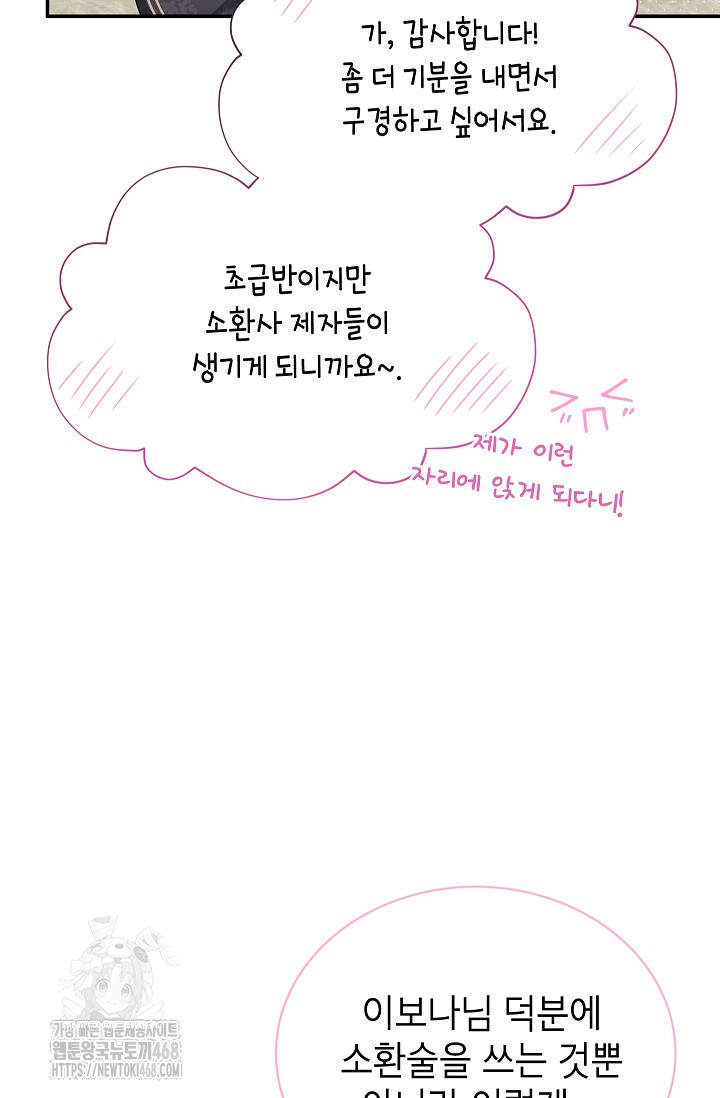 가, 감사합니다!
좀 더 기분을 내면서
구경하고 싶어서요.
초급반이지만
소환사 제자들이
생기게 되니까요~.
제가 이런
자리에 앉게 되다니!
가장 빠른 웹툰제공사이트
웹툰왕국뉴토끼468
HTTPS://NEWTOKI468.COM
이보나님 덕분에
소환술을 쓰는 것뿐
아니라 이렇게